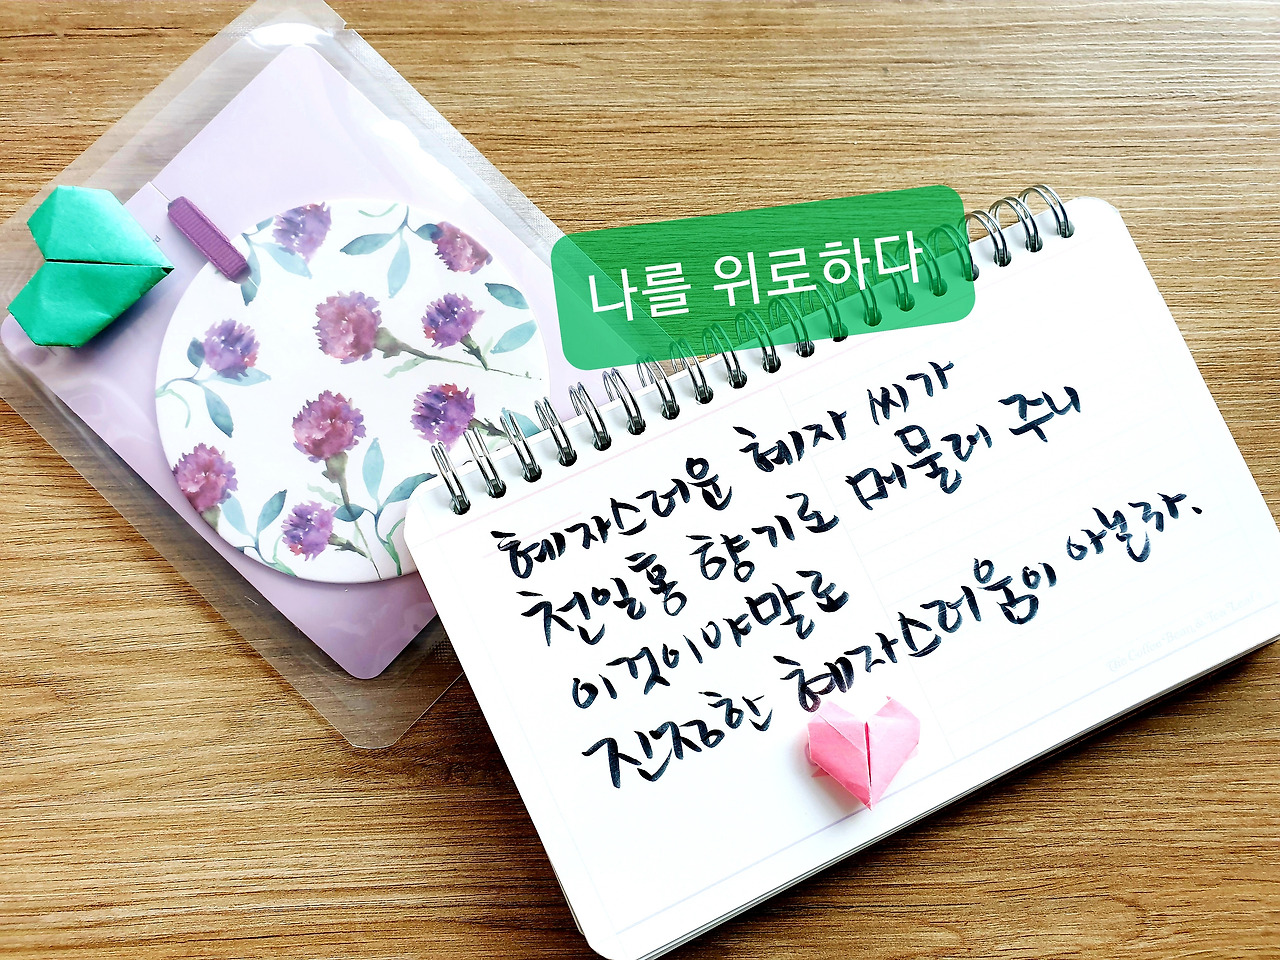 나를 위로하다
혜자스러운 혜자 씨가
천일홍 향기로 메물레 주니
이것이야말로
진정한 혜자스러움이 아닐라.
The Coffee Bean & Tea Leaf